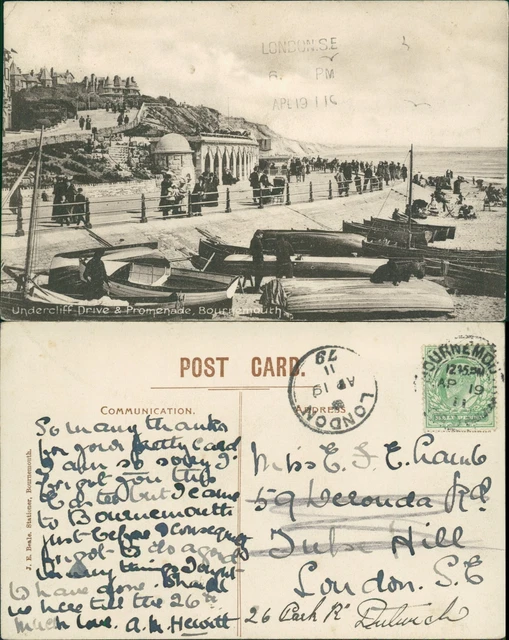 LONDON.S.E
6. PM
APL 19 11
Undercliff Drive & Promenade, Bournemouth
POST CARD.
COMMUNICATION.
ADDRESS
J. E. Beale, Stationer, Bournemouth.
So many thanks
for your pretty card
I am so sorry I
forgot you this
Easter but I came
to Bournemouth
just before & consequently
forgot to do a good
many things I ought
to have done. Shall
be here till the 26th
much love. A.M. Hewitt
LONDON
AP 19
11
79
BOURNEMOUTH
12.15 PM
AP 19
11
Miss E. F. E. Lamb
59 Deronda Rd.
Tulse Hill
London. S.E
26 Park Rd Dulwich